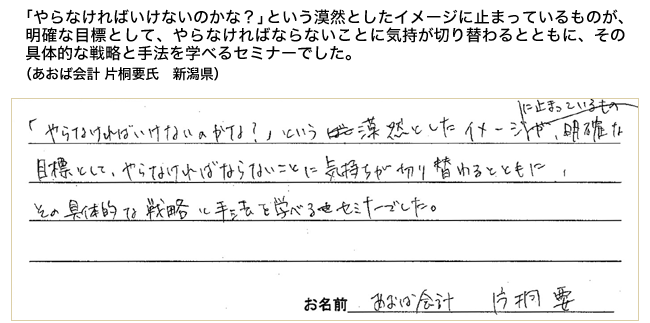 「やらなければいけないのかな？」という漠然としたイメージに止まっているものが、
明確な目標として、やらなければならないことに気持が切り替わるとともに、その
具体的な戦略と手法を学べるセミナーでした。
（あおば会計 片桐要氏　新潟県）
に止まっているもの
「やらなければいけないのかな？」という漠然としたイメージが、明確な
目標として、やらなければならないことに気持ちが切り替わるとともに、
その具体的な戦略と手法を学べるセミナーでした。
お名前 あおば会計 片桐 要